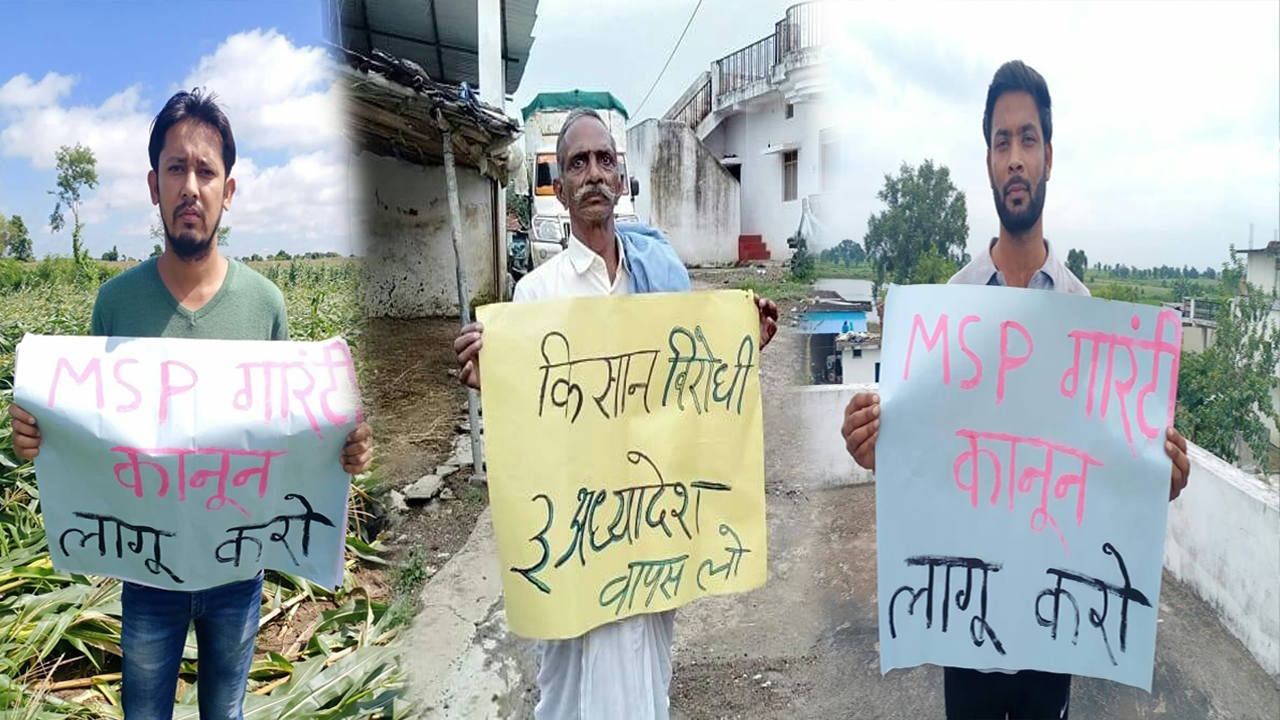 MSP गारंटी
कानून
लागू करो
किसान विरोधी
3 अध्यादेश
वापस लो
MSP गारंटी
कानून
लागू करो